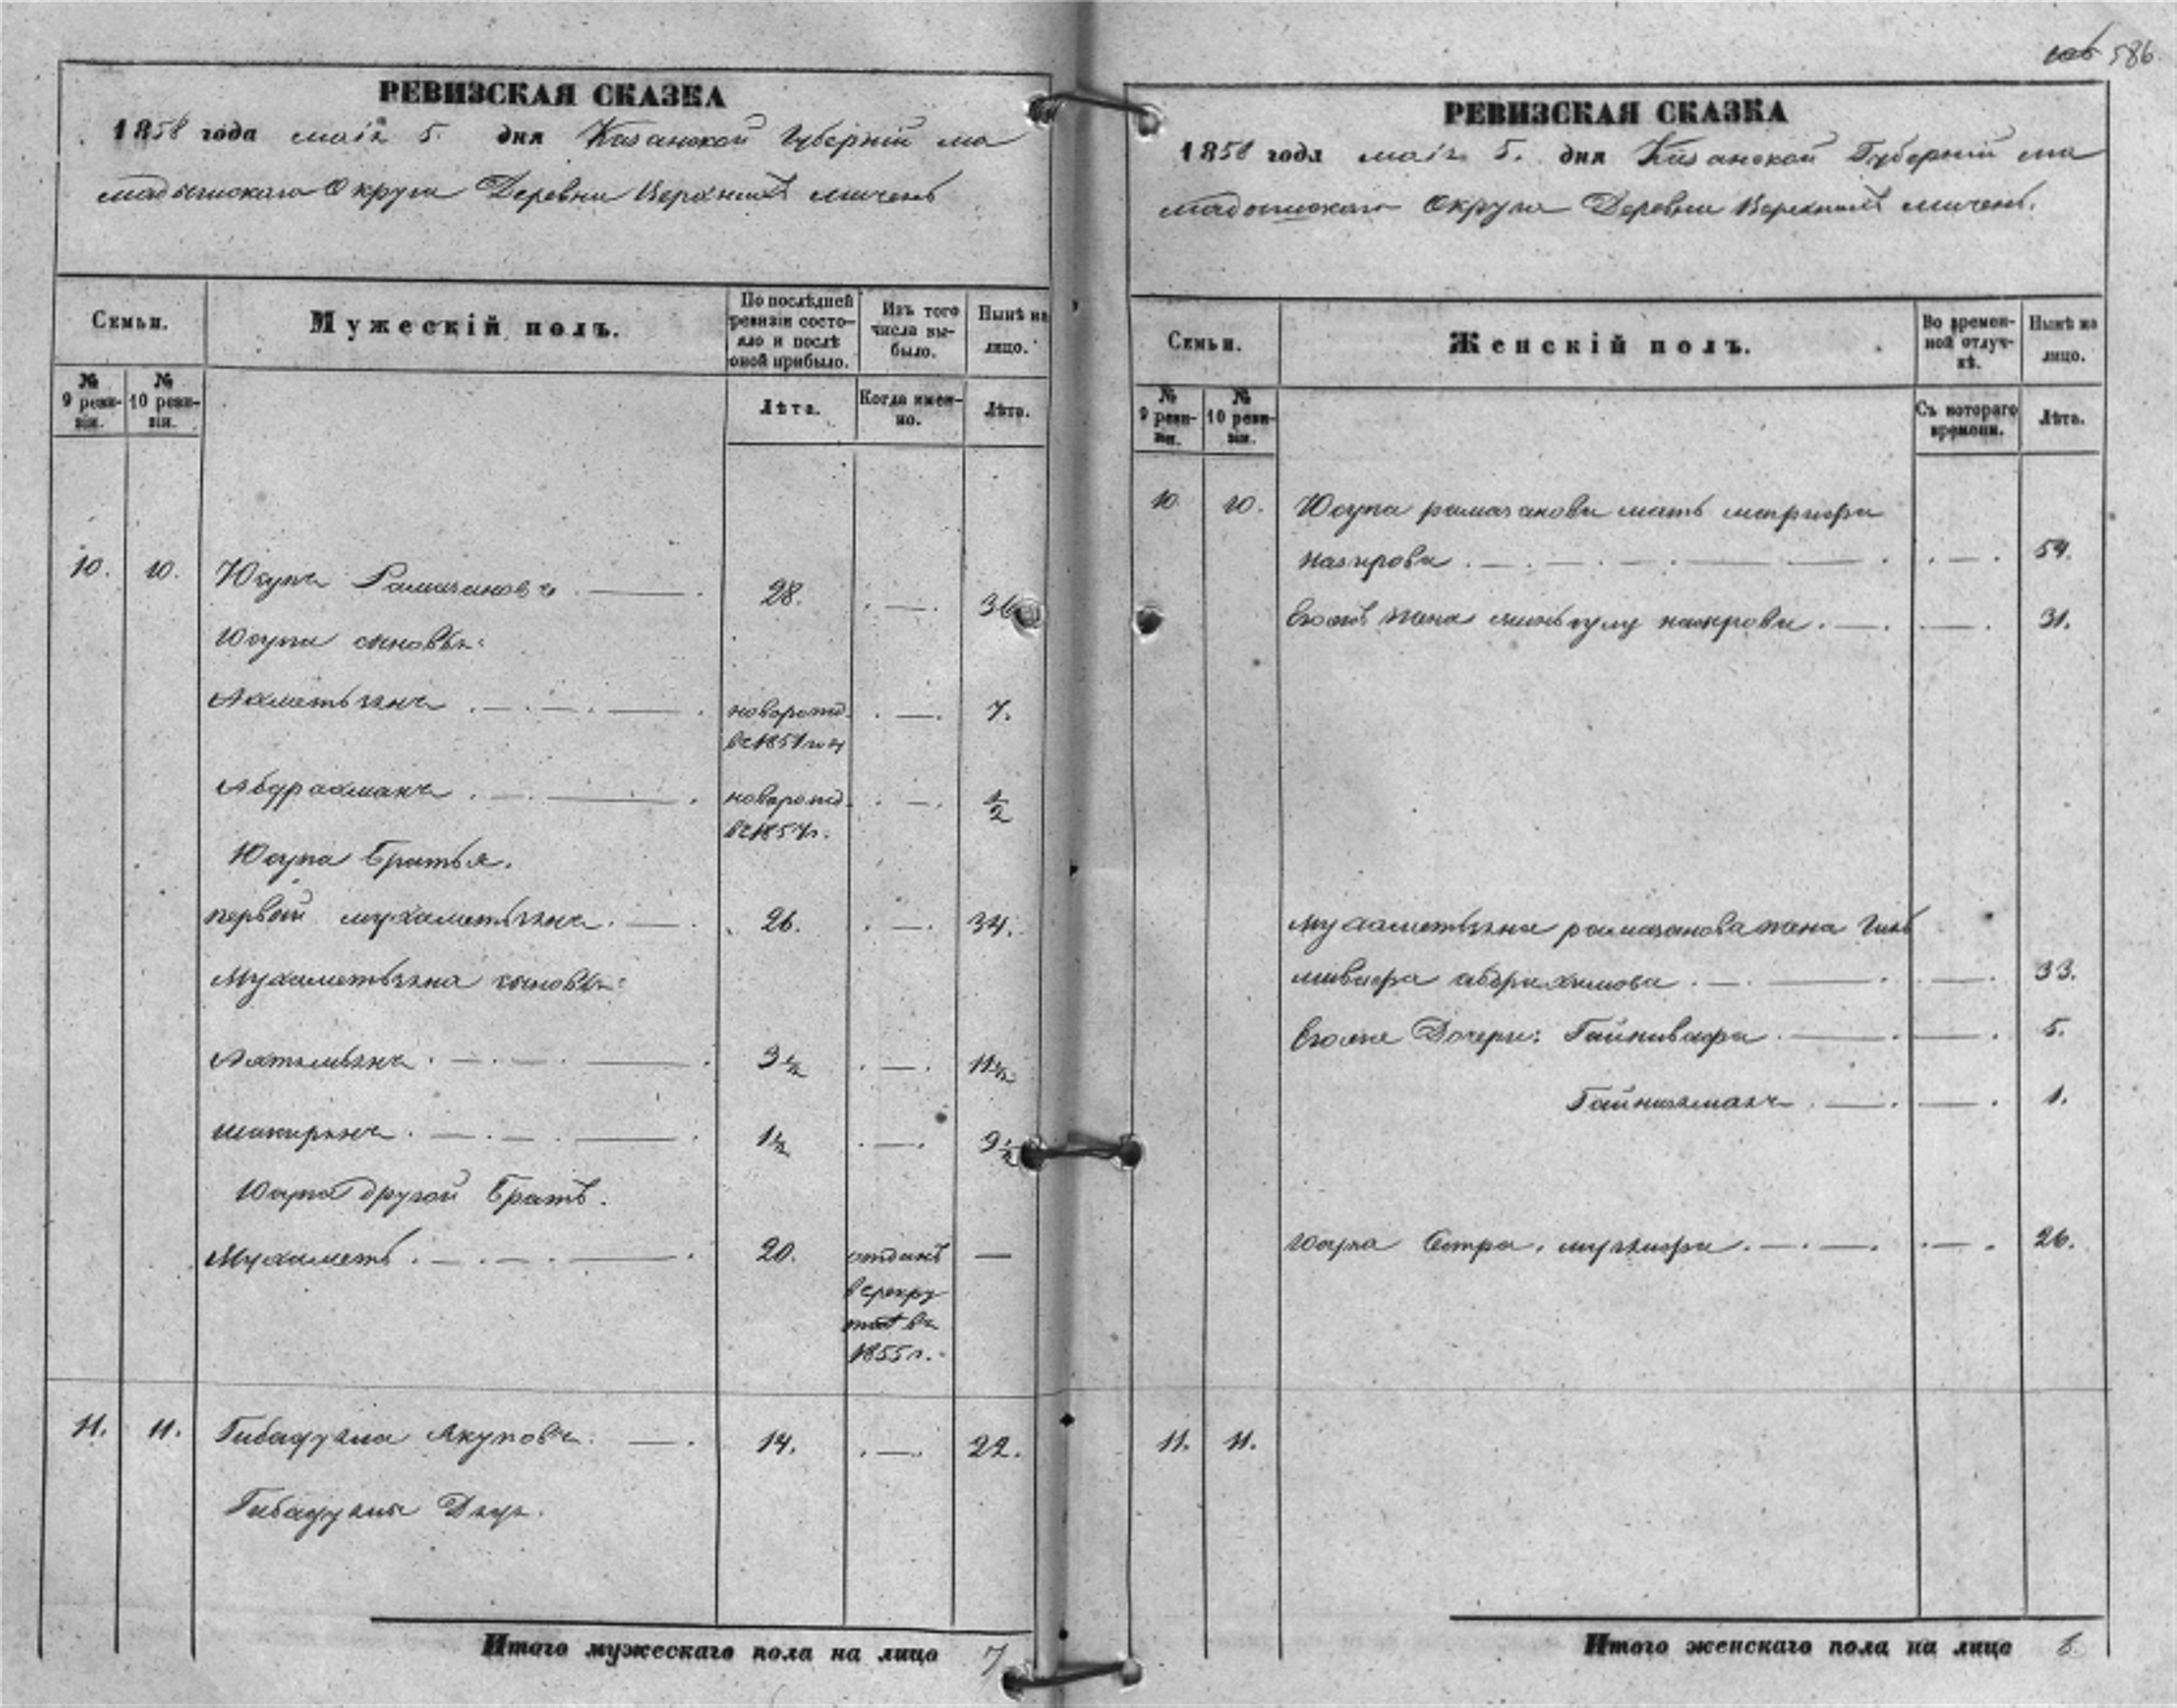 586.
РЕВИЗСКАЯ СКАЗКА
1858 года маія 5. дня Казанской Губерніи ма
мадышскаго Округа Деревни Верхній
Семьи.
Мужескій полъ.
По послѣдней ревизіи состо-
яло и послѣ оной прибыло.
Изъ того числа вы-
было.
Нынѣ на лицо.
№ 9 реви-
зіи.
№ 10 реви-
зіи.
Лѣта.
Когда имен-
но.
Лѣта.
10. 10. Юсупъ Рамазановъ 28. 36
Юсупа сыновья:
Ахметьзянъ новорожд. 7.
въ 1851 году
Абдрахманъ новорожд. 1/2
въ 1857 г.
Юсупа братья.
первой мухаметьзянъ 26. 34.
Мухаметьзяна сыновья:
3 1/2 11 1/2
шакирзянъ 1 1/2 9 1/2
Юсупа другой братъ.
Мухаметь 20. отданъ —
в рекру
въ
1855 г.
11. 11. Гибадулла Якуповъ 14. 22.
Гибадуллы
Итого мужескаго пола на лицо 7
РЕВИЗСКАЯ СКАЗКА
1858 года маія 5. дня Казанской Губерніи ма
мадышскаго Округа Деревни Верхній
Семьи.
Женскій полъ.
Во времен-
ной отлуч-
кѣ.
Нынѣ на лицо.
№ 9 реви-
зіи.
№ 10 реви-
зіи.
Съ котораго времени.
Лѣта.
10. 10. Юсупа рамазанова мать
54.
жена 31.
Мухаметьзяна рамазанова жена
абдрахимова 33.
Дочери: Гайнивафа 5.
1.
Юсупа Сестра 26.
11. 11.
Итого женскаго пола на лицо 6.